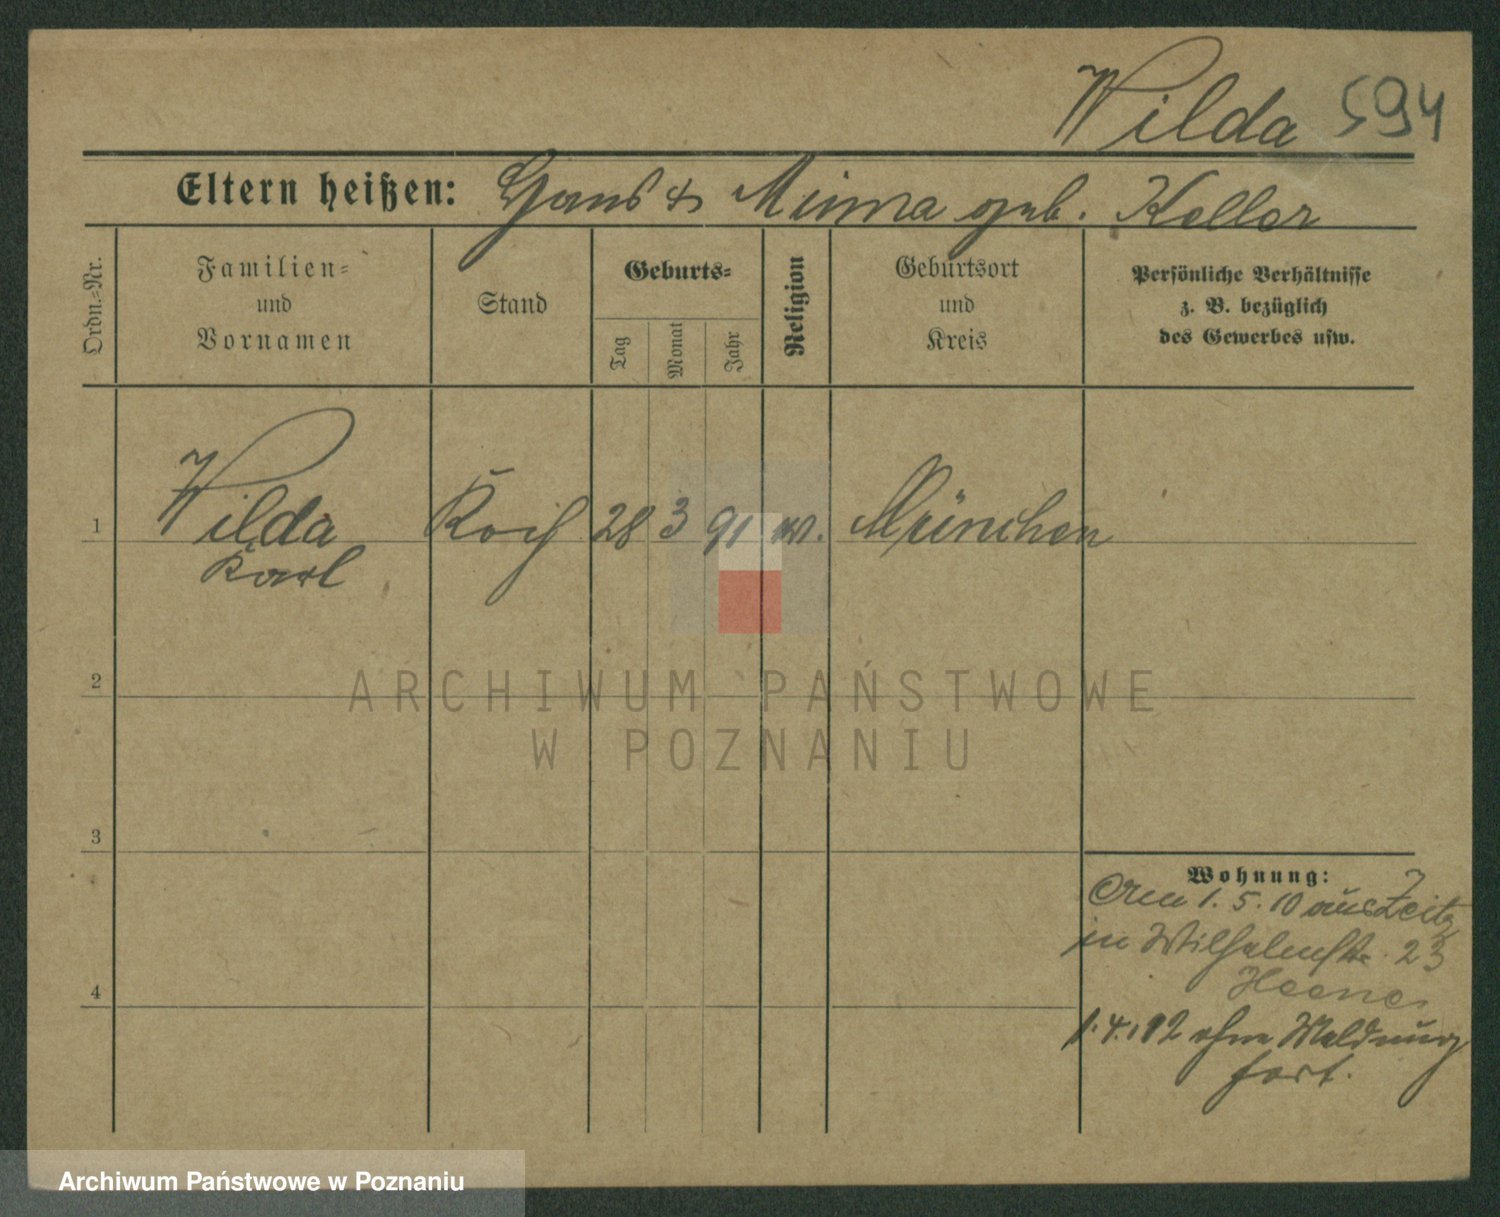 Wilda 594
Eltern heißen: Hans & Minna geb. Keller
Ordn.=Nr.
Familien=
und
Vornamen
Stand
Geburts=
Tag
Monat
Jahr
Religion
Geburtsort
und
Kreis
Persönliche Verhältnisse
z. B. bezüglich
des Gewerbes usw.
1 Wilda Koch 28 3 91 München
Karl
2
3
4
Wohnung:
1. 5. 10 aus Zeitz
in Wilhelmstr. 23
1.4.12 ohne Meldung
fort.
ARCHIWUM PAŃSTWOWE
W POZNANIU
Archiwum Państwowe w Poznaniu